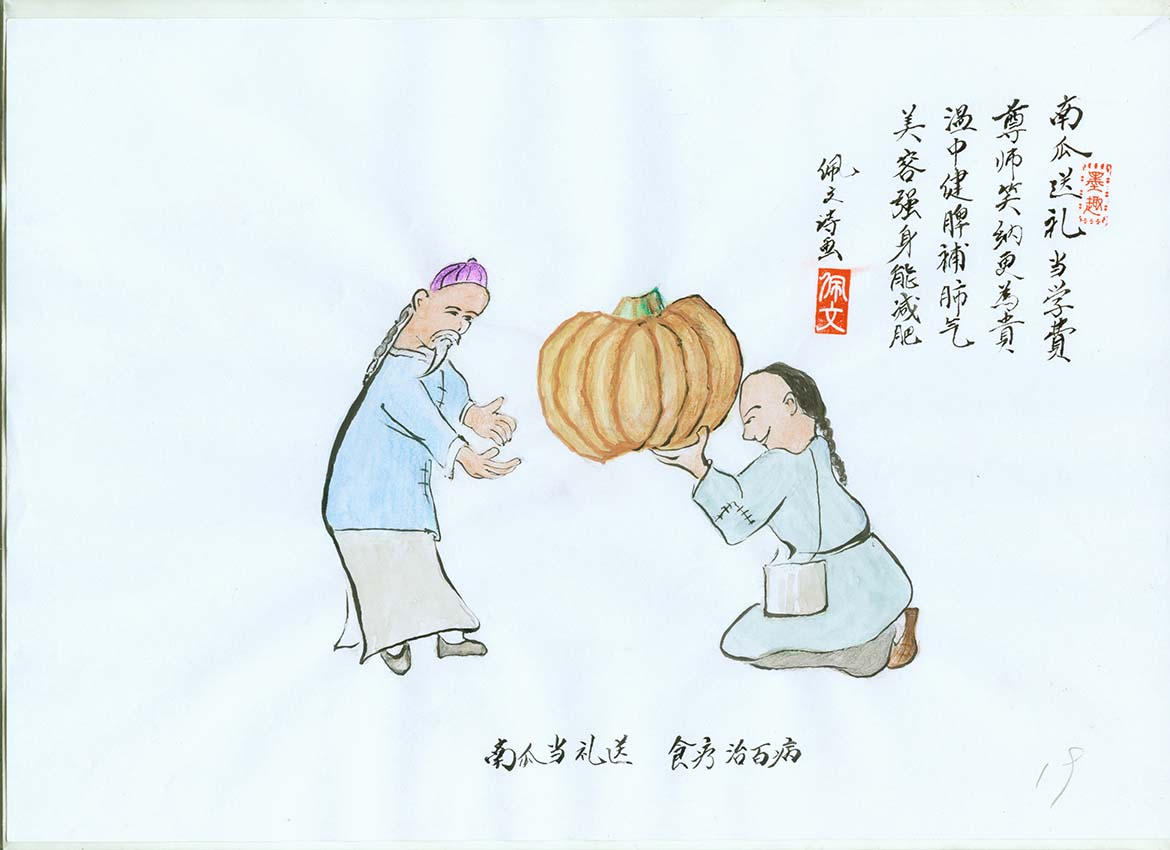 南瓜送礼当学費
尊师笑纳更為貴
温中健脾補肺气
美容强身能减肥
佩文诗画
佩文
墨趣
南瓜当礼送 食疗治百病
19